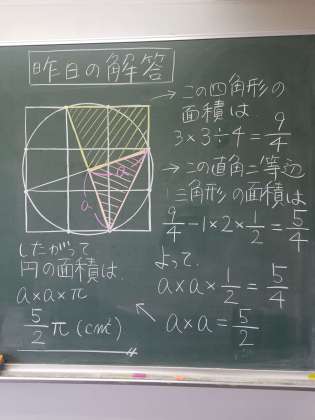 昨日の解答
→この四角形の
面積は
3×3÷4=9/4
→この直角二等辺
三角形の面積は
9/4-1×2×1/2=5/4
よって、
a×a×1/2=5/4
a×a=5/2
a
a
したがって
円の面積は、
a×a×π
5/2π(cm²)